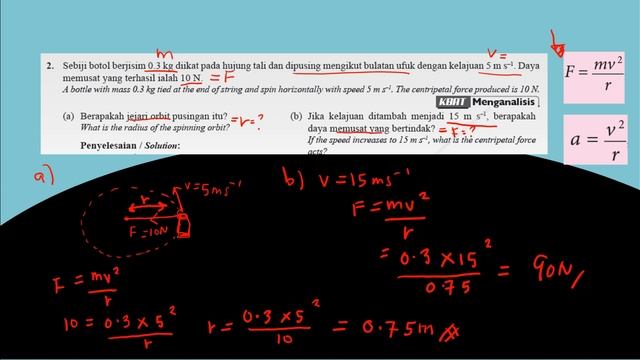 m
v=
2. Sebiji botol berjisim 0.3 kg diikat pada hujung tali dan dipusing mengikut bulatan ufuk dengan kelajuan 5 m s⁻¹. Daya
memusat yang terhasil ialah 10 N. = F
A bottle with mass 0.3 kg tied at the end of string and spin horizontally with speed 5 m s⁻¹. The centripetal force produced is 10 N.
KBAT Menganalisis
(a) Berapakah jejari orbit pusingan itu? = r = ?
What is the radius of the spinning orbit?
Penyelesaian / Solution:
(b) Jika kelajuan ditambah menjadi 15 m s⁻¹, berapakah
daya memusat yang bertindak? = F = ?
If the speed increases to 15 m s⁻¹, what is the centripetal force
acts?
F = mv²/r
a = v²/r
a)
v=5ms⁻¹
r
F=10N
F = mv²/r
10 = 0.3 × 5²/r
r = 0.3 × 5²/10 = 0.75m
b) v=15ms⁻¹
F = mv²/r
= 0.3 × 15²/0.75 = 90N